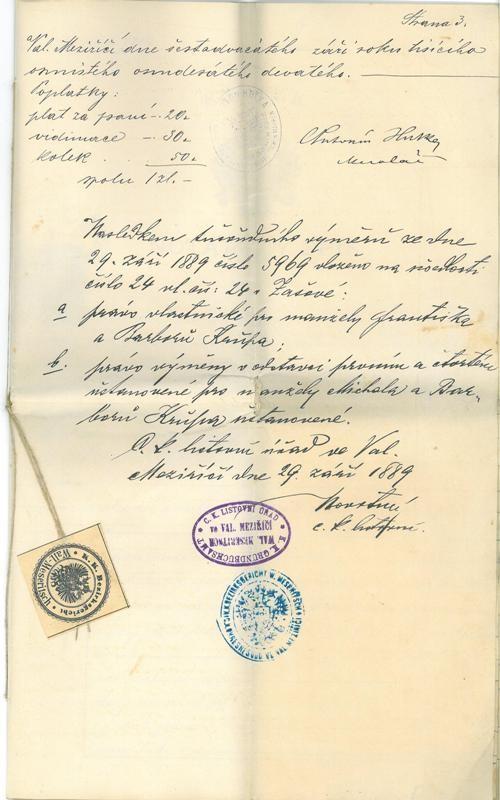 Strana 3.
Val. Meziříčí dne šestadvacátého září roku tisícího
osmistého osmdesátého devátého.
Poplatky:
plat za psaní -. 20 kr
vidimace -. 30 kr
kolek . 50 kr
spolu 1 zl. -
Antonín
Následkem tusoudního výměru ze dne
29. září 1889 číslo 5969 vloženo na usedlosti
číslo 24 vl. čís: 24 v Zašové:
a právo vlastnické pro manžely Františka
a Barboru Křupa;
b. právo výměny v odstavci prvním a čtvrtém
ustanovené pro manžely Michala a Bar-
boru Křupa ustanovené.
C. k. listovní úřad ve Val.
Meziříčí dne 29. září 1889
Novotný
c. k.
C. K. LISTOVNÍ ÚŘAD
VE VAL. MEZIŘÍČÍ
WAL. MESERITSCH
K. K. GRUNDBUCHSAMT
K. K. Bezirksgericht
Wal. Meseritsch
K. K. BEZIRKSGERICHT W. MESERITSCH